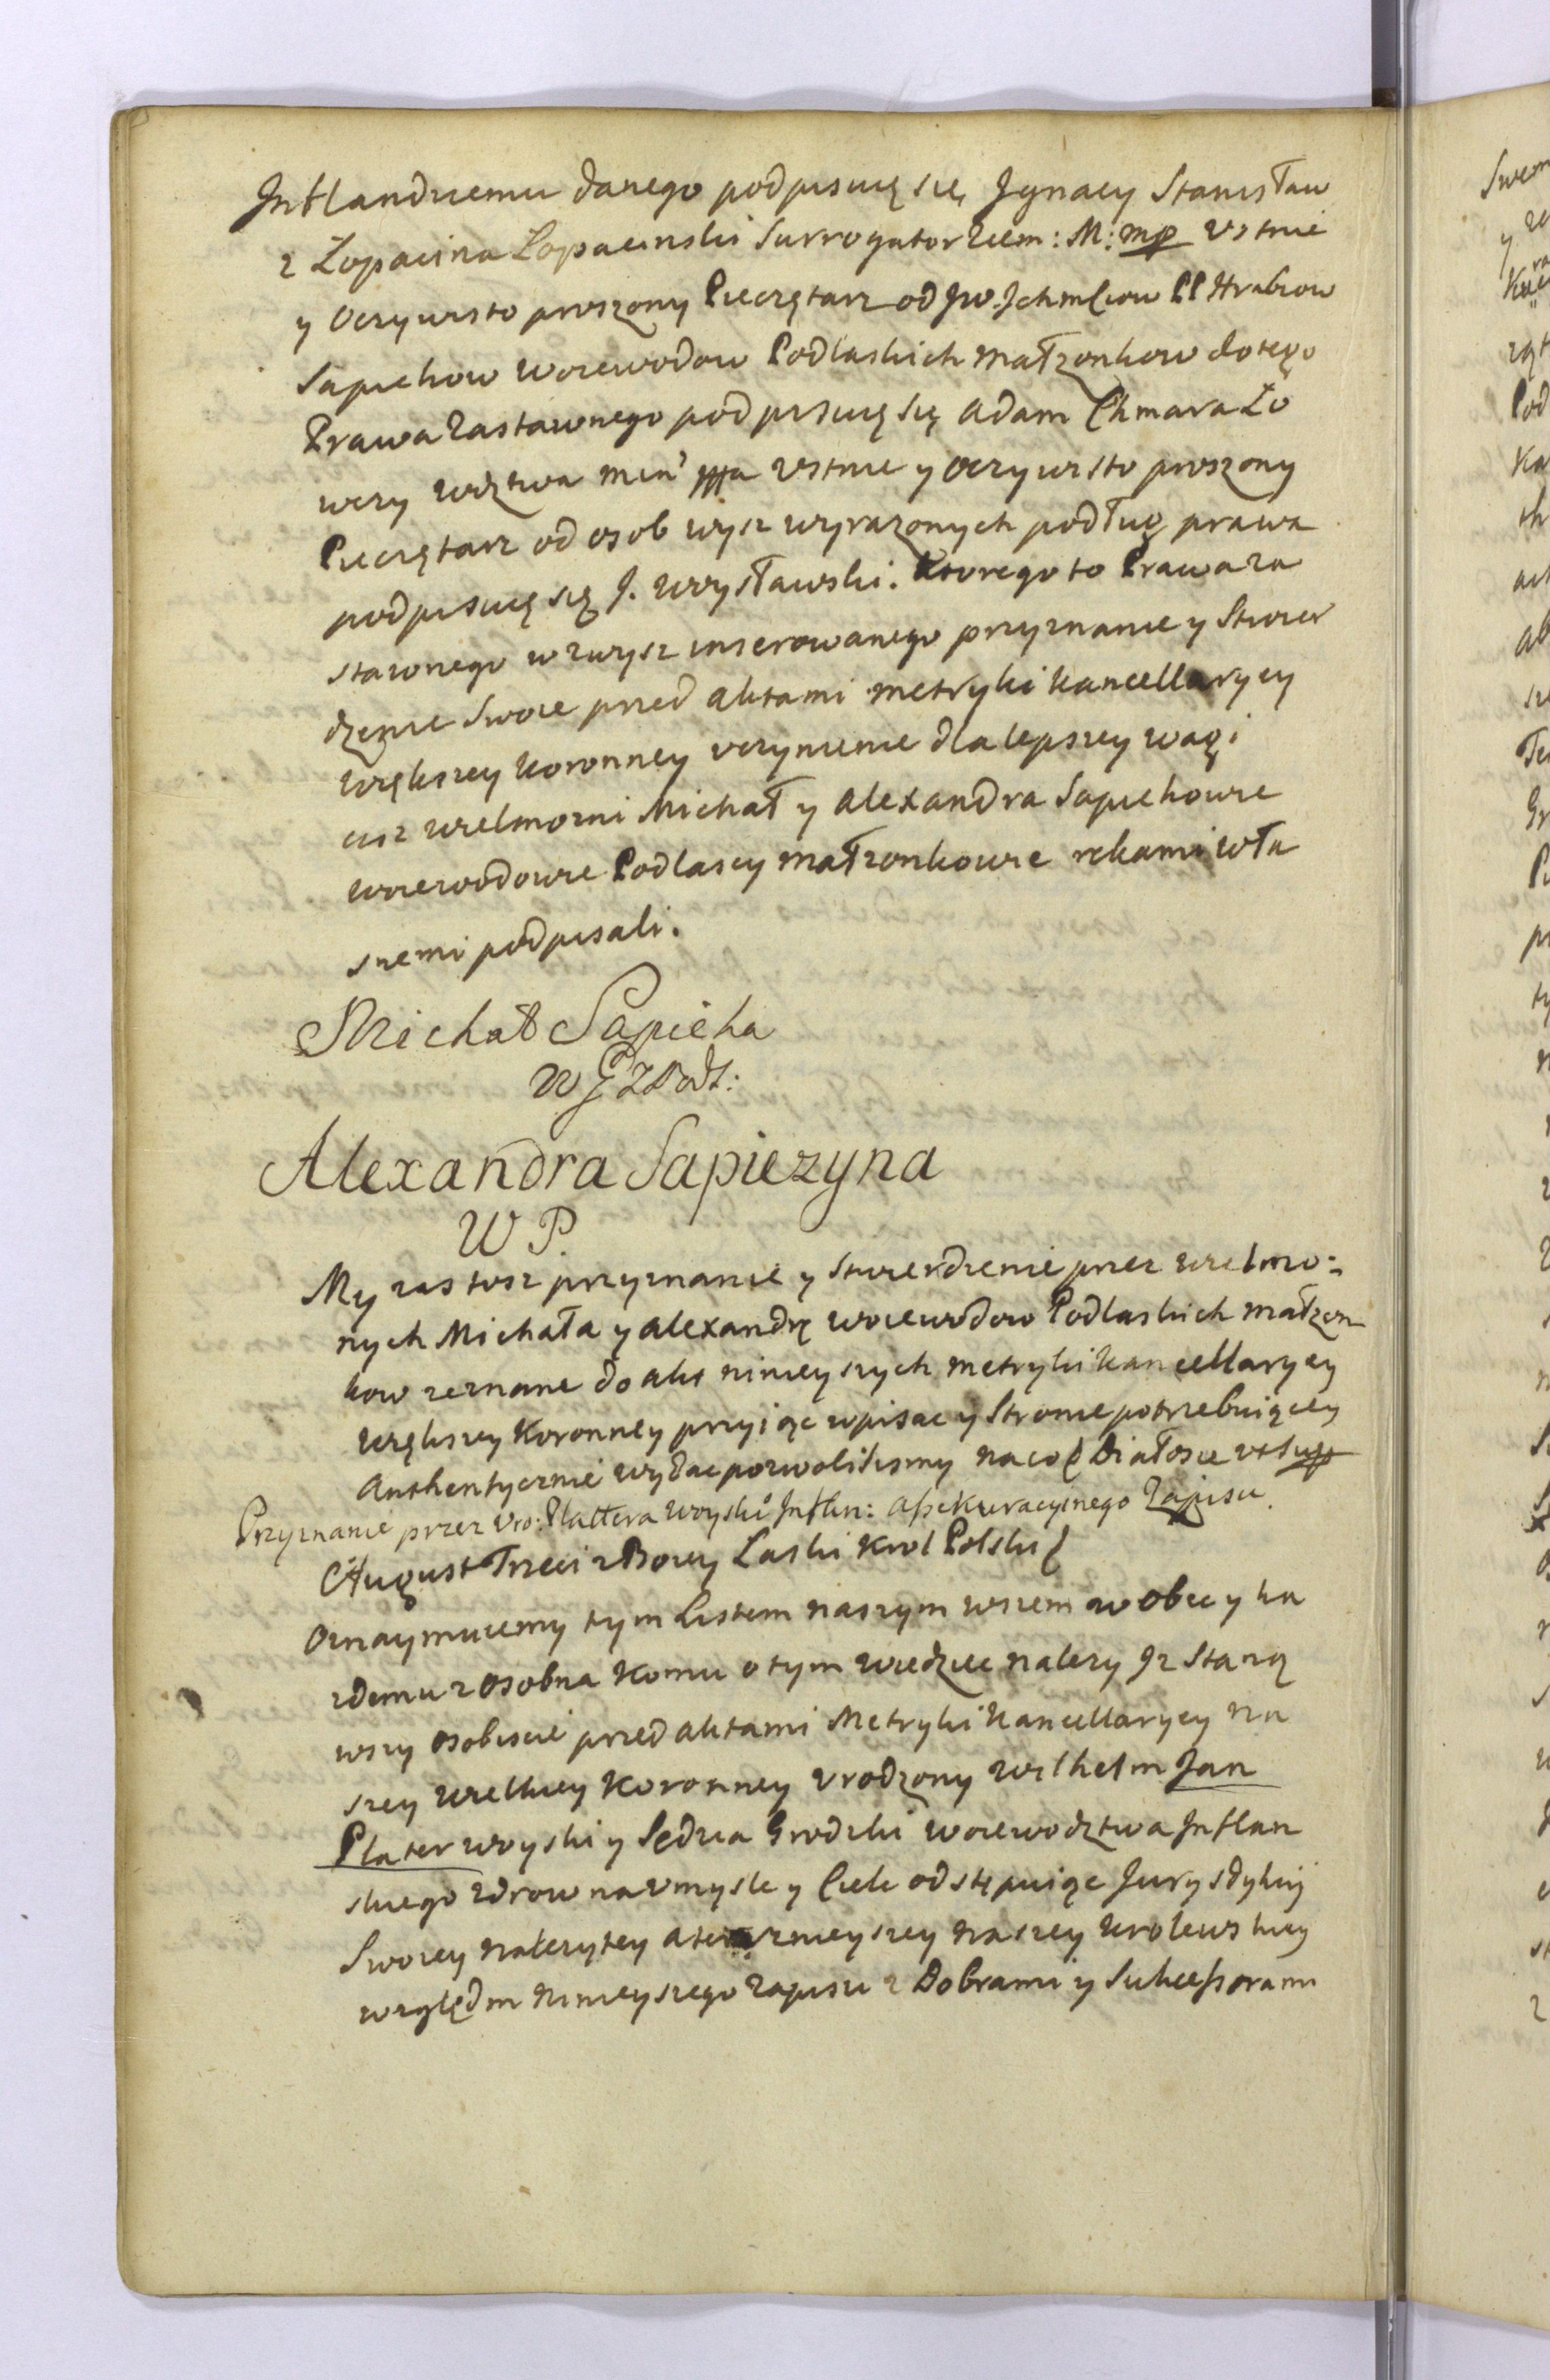 Inflandziemu danego podpisuię się Jgnacy Stanisław
z Łopacina Łopacinski Surrogator Ziem: M: mp Vstnie
y Oczywisto proszony Pieczętarz od Jw. Jchmciow PP Hrabiow
Sapiehow Woiewodow Podlaskich małżonkow do tego
Prawa Zastawnego podpisuię się Adam Chmara Ło
wczy wdztwa min' Vstnie y Oczywisto proszony
Pieczętarz od osob wysz wyrażonych podług prawa
podpisuię się J. Woysławski. Ktorego to Prawa za
stawnego wzwysz inserowanego przyznanie y Stwier
dzenie Swoie przed Aktami metryki kancellaryey
większey koronney vczynienie dla lepszey wagi
ciż wielmożni Michał y Alexandra Sapiehowie
woiewodowie Podlascy małżonkowie rękami wła
snemi podpisali.
Michał Sapieha
Alexandra Sapiezyna
W P.
My zas tosz przyznanie y Stwierdzenie przez wielmo:
nych Michała y Alexandrę woiewodow Podlaskich małżon
kow zeznane do akt ninieyszych metryki kancellaryey
większey Koronney przyiąc wpisac y Stronie potrzebuiącey
Authentycznie wydac pozwolilismy na co Działosię vt supp
Przyznanie przez Vro: Plattera Woyski Inflan: Assekuracyinego Zapisu.
August Trzeci z Bozey Laski Krol Polski
Oznaymuiemy tym Listem naszym wszem w obec y ka
zdemu z osobna Komu o tym wiedziec nalezy Jz Staną
wszy osobiscie przed aktami Metryki kancellaryey na
szey wielkiey Koronney Vrodzony Wilhelm Jan
Plater woyski y Sędzia Grodzki woiewodztwa Inflan
skiego zdrow na Vmysle y Ciele odstępuiąc Jurysdykcij
Swoiey nalezytey a terazneyszey naszey krolewskiey
względem ninieyszego Zapisu z Dobrami y Sukcessorami